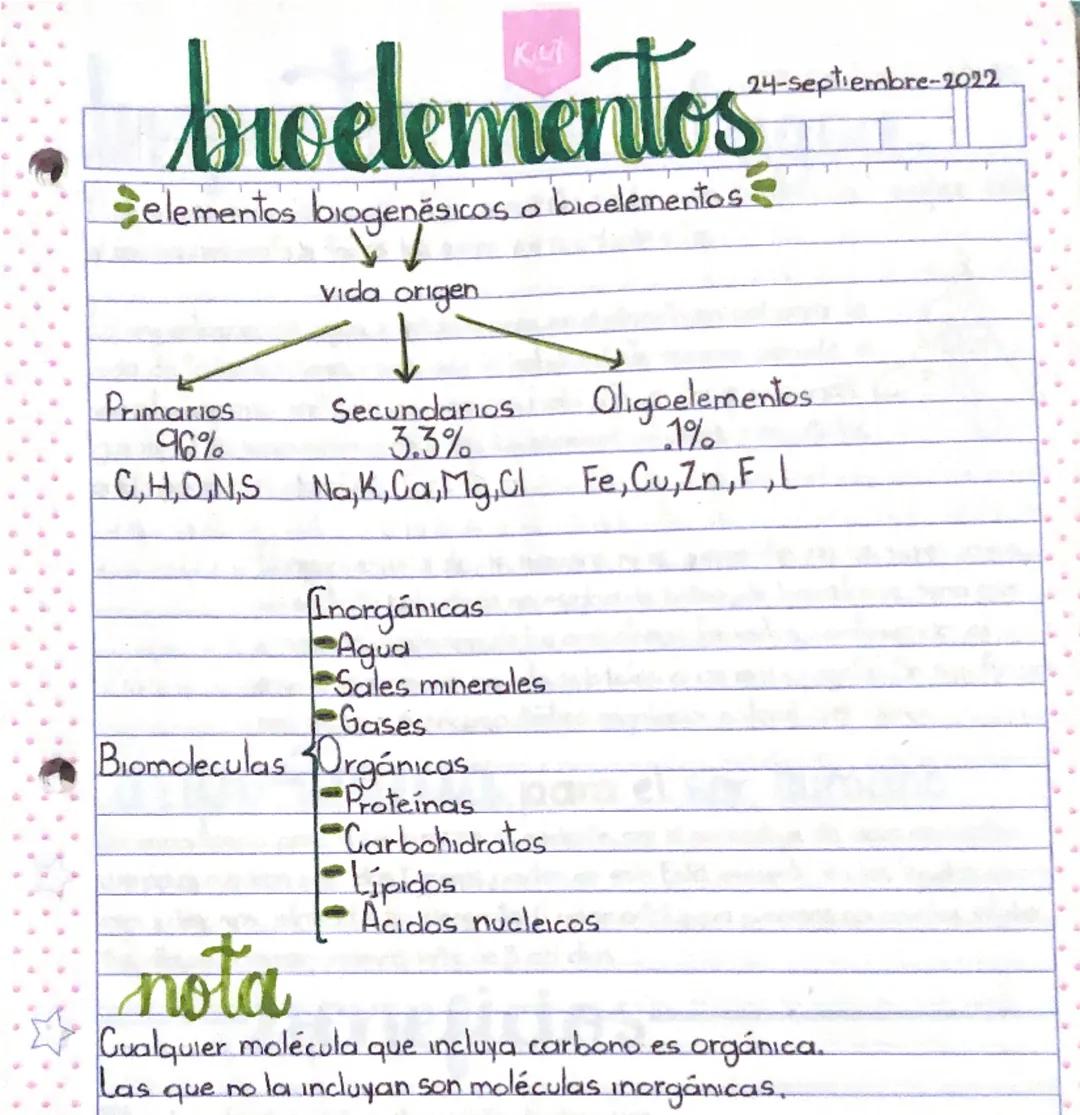 Kiut
bioelementos
24-septiembre-2022
elementos biogenésicos o bioelementos
vida origen
Primarios Secundarios Oligoelementos
96% 3.3% .1%
C,H,O,N,S Na,K,Ca,Mg,Cl Fe,Cu,Zn,F,L
Inorgánicas
-Agua
-Sales minerales
-Gases
Biomoleculas
Orgánicas
-Proteínas
-Carbohidratos
-Lípidos
-Ácidos nucleicos
nota
Cualquier molécula que incluya carbono es orgánica.
Las que no la incluyan son moléculas inorgánicas.